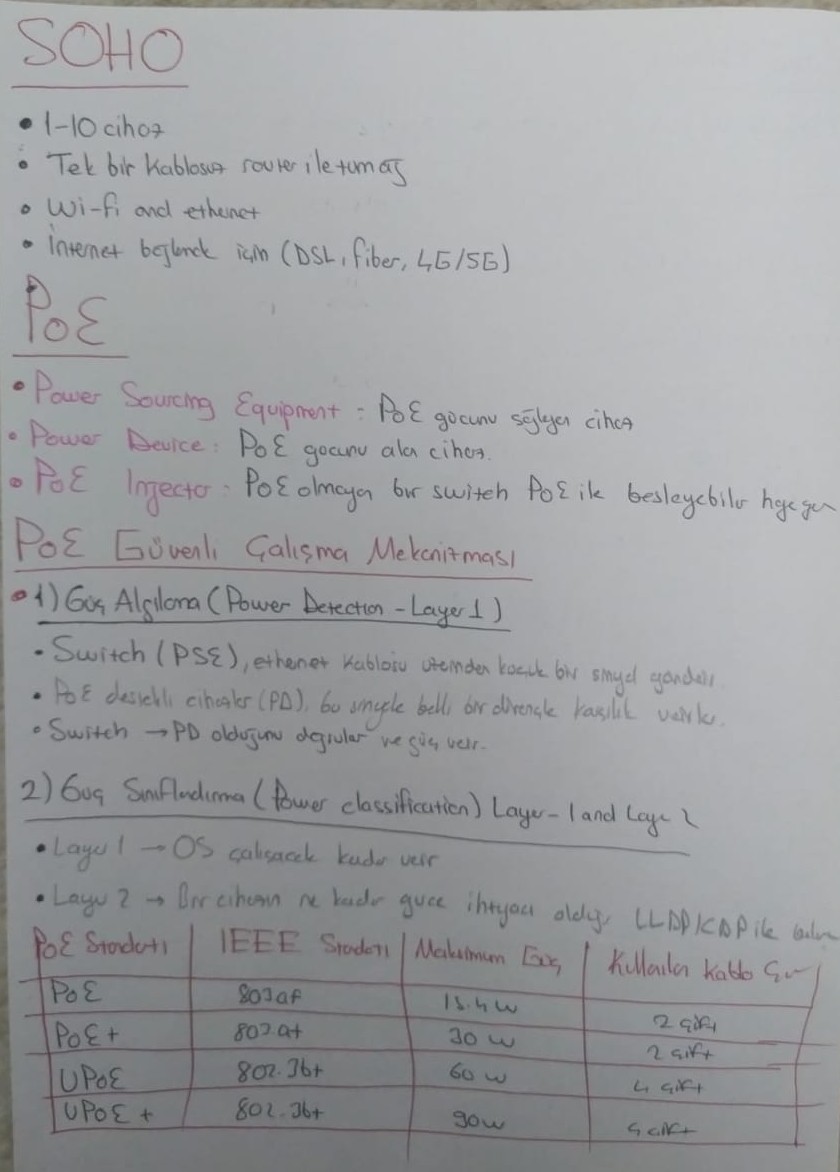 SOHO
• 1-10 cihaz
• Tek bir Kablosuz router ile tüm ağ
• Wi-fi and ethernet
• İnternet bağlamak için (DSL, fiber, 4G/5G)
PoE
• Power Sourcing Equipment : PoE gücünü sağlayan cihaz
• Power Device : PoE gücünü alan cihaz.
• PoE Injector : PoE olmayan bir switch PoE ile besleyebilir
PoE Güvenli Çalışma Mekanizması
• 1) Güç Algılama (Power Detection - Layer 1)
• Switch (PSE), ethernet kablosu üzerinden küçük bir sinyal gönderir.
• PoE destekli cihazlar (PD), bu sinyale belli bir dirençle karşılık verirler.
• Switch → PD olduğunu doğrular ve güç verir.
2) Güç Sınıflandırma (Power classification) Layer - 1 and Layer 2
• Layer 1 → OS çalışacak kadar verir
• Layer 2 → Bir cihazın ne kadar güce ihtiyacı olduğu LLDP/CDP ile
PoE Standartı | IEEE Standartı | Maksimum Güç | Kullanılan Kablo Çifti
PoE | 803af | 15.4 W | 2 çift
PoE+ | 802.at | 30 W | 2 çift
UPoE | 802.3bt | 60 W | 4 çift
UPoE + | 802.3bt | 90 W | 4 çift